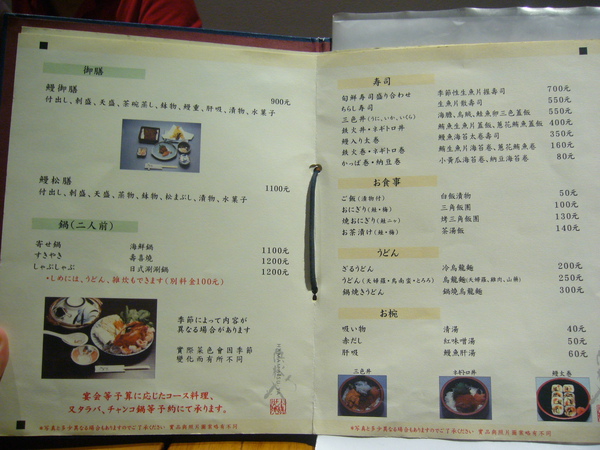 御膳
鰻御膳 900元
付出し、刺盛、天盛、茶碗蒸し、鉢物、鰻重、肝吸、漬物、水菓子
鰻松膳 1100元
付出し、刺盛、天盛、蒸物、鉢物、松まぶし、漬物、水菓子
鍋(二人前)
寄せ鍋 海鮮鍋 1100元
すきやき 壽喜燒 1200元
しゃぶしゃぶ 日式涮涮鍋 1200元
・しめには、うどん、雑炊もできます(別料金100元)
季節によって内容が
異なる場合があります
實際菜色會因季節
變化而有所不同
宴会等予算に応じたコース料理、
スタラバ、チャンコ鍋等予約にて承ります。
*写真と多少異なる場合もありますのでご了承ください 實品與照片擺業或有不同
寿司
旬鮮寿司盛り合わせ 季節性生魚片握壽司 700元
ちらし寿司 生魚片散壽司 550元
三色丼(うに、いか、いくら) 海膽、烏賊、鮭魚卵三色蓋飯 550元
鉄火丼・ネギトロ丼 鮪魚生魚片蓋飯、蔥花鮪魚蓋飯 400元
鰻入り太巻 鰻魚海苔太卷壽司 350元
鉄火巻・ネギトロ巻 鮪生魚片海苔卷、蔥花鮪魚卷 160元
かっぱ巻・納豆巻 小黃瓜海苔卷、納豆海苔卷 80元
お食事
ご飯(漬物付) 白飯漬物 50元
おにぎり(鮭・梅) 三角飯團 100元
焼おにぎり(鮭ニッ) 烤三角飯團 130元
お茶漬け(鮭・梅) 茶湯飯 140元
うどん
ざるうどん 冷烏龍麵 200元
うどん(天婦羅・鳥南蛮・とろろ) 烏龍麵(天婦羅、雞肉、山藥) 250元
鍋焼きうどん 鍋燒烏龍麵 300元
お椀
吸い物 清湯 40元
赤だし 紅味噌湯 50元
肝吸 鰻魚肝湯 60元
三色丼 ネギトロ丼 鰻太巻
*写真と多少異なる場合もありますのでご了承ください 實品與照片擺業或有不同